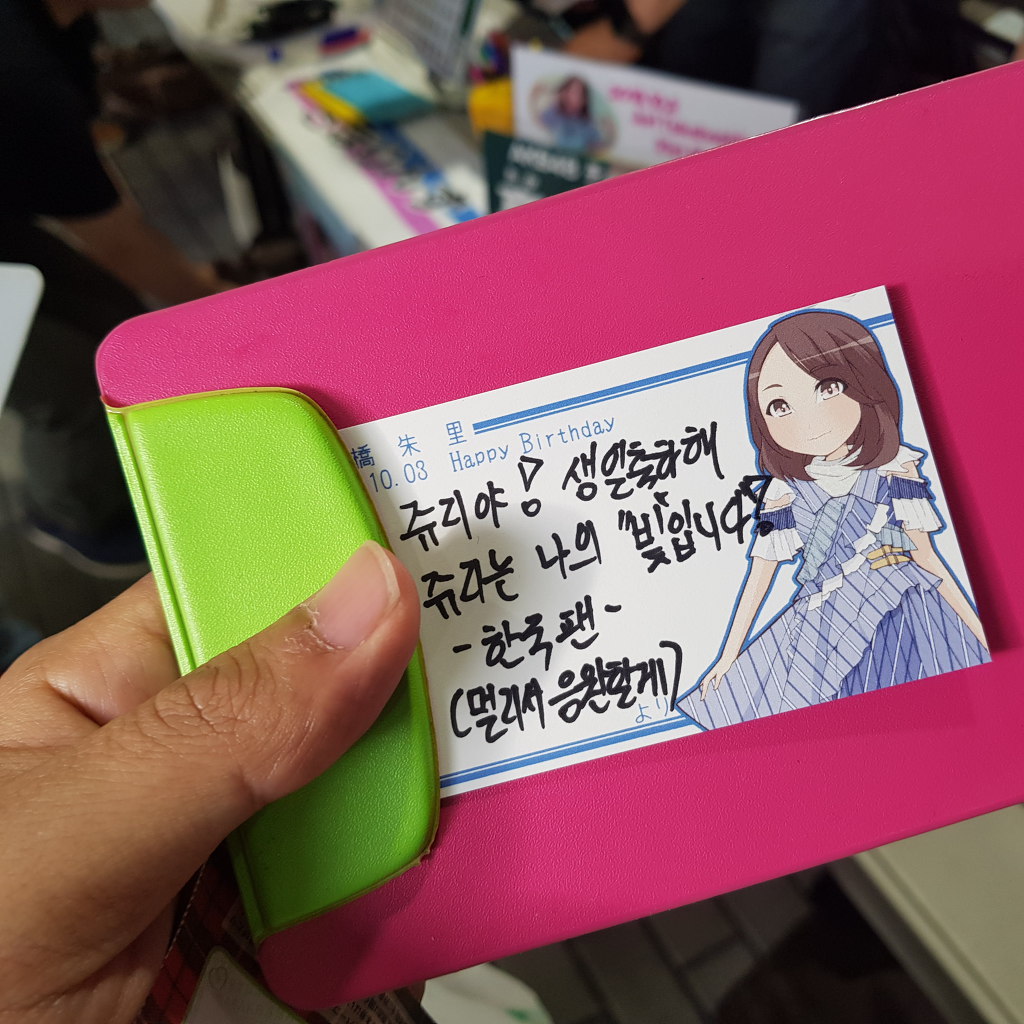 橋 朱 里
10.03 Happy Birthday
쥬리야! 생일축하해
쥬리는 나의 "빛"입니다!
-한국 팬-
(멀리서 응원할게)
より